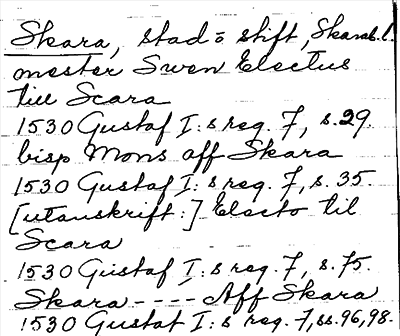 Skara, stad o stift, Skarab. l.
mester Swen Electus
till Scara
1530 Gustaf I:s reg. 7, s. 29.
bisp Mons aff Skara
1530 Gustaf I:s reg. 7, s. 35.
[utanskrift:] Electo til
Scara
1530 Gustaf I:s reg. 7, s. 75.
Skara - - - - Aff Skara
1530 Gustaf I:s reg. 7, ss. 96, 98.